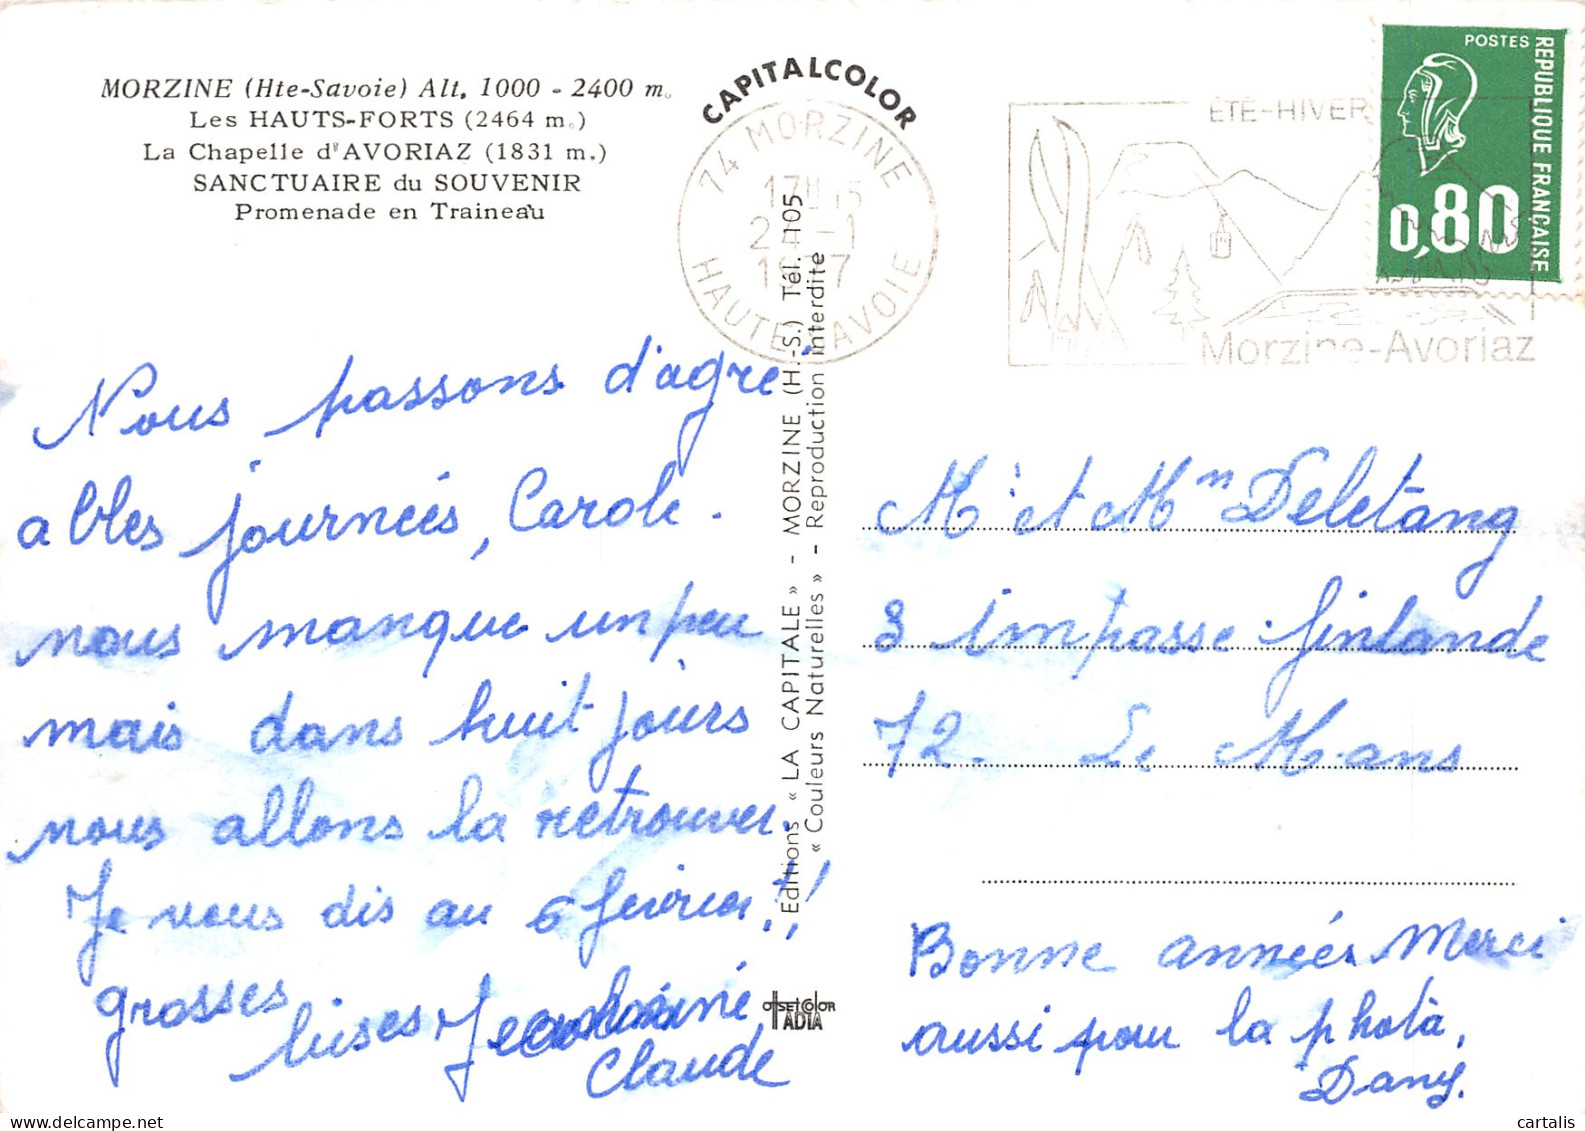 MORZINE (Hte-Savoie) Alt. 1000 - 2400 m.
Les HAUTS-FORTS (2464 m.)
La Chapelle d'AVORIAZ (1831 m.)
SANCTUAIRE du SOUVENIR
Promenade en Traineau
CAPITALCOLOR
74 MORZINE
HAUTE SAVOIE
ÉTÉ-HIVER
Morzine-Avoriaz
POSTES
REPUBLIQUE FRANCAISE
0,80
Nous passons d'agré
ables journées, Carole.
nous manque un peu
mais dans huit jours
nous allons la retrouver.
Je vous dis au 6 février!!
grosses
bises
Claude
Editions « LA CAPITALE » - MORZINE (H.-S.) Tél. 105
« Couleurs Naturelles » - Reproduction interdite
OffSETCOlOR
IADIA
M. et Mm Deletang
8 impasse finlande
72. Le Mans
Bonne année. Merci
aussi pour la photo,
Dany.
cartalis
www.delcampe.net